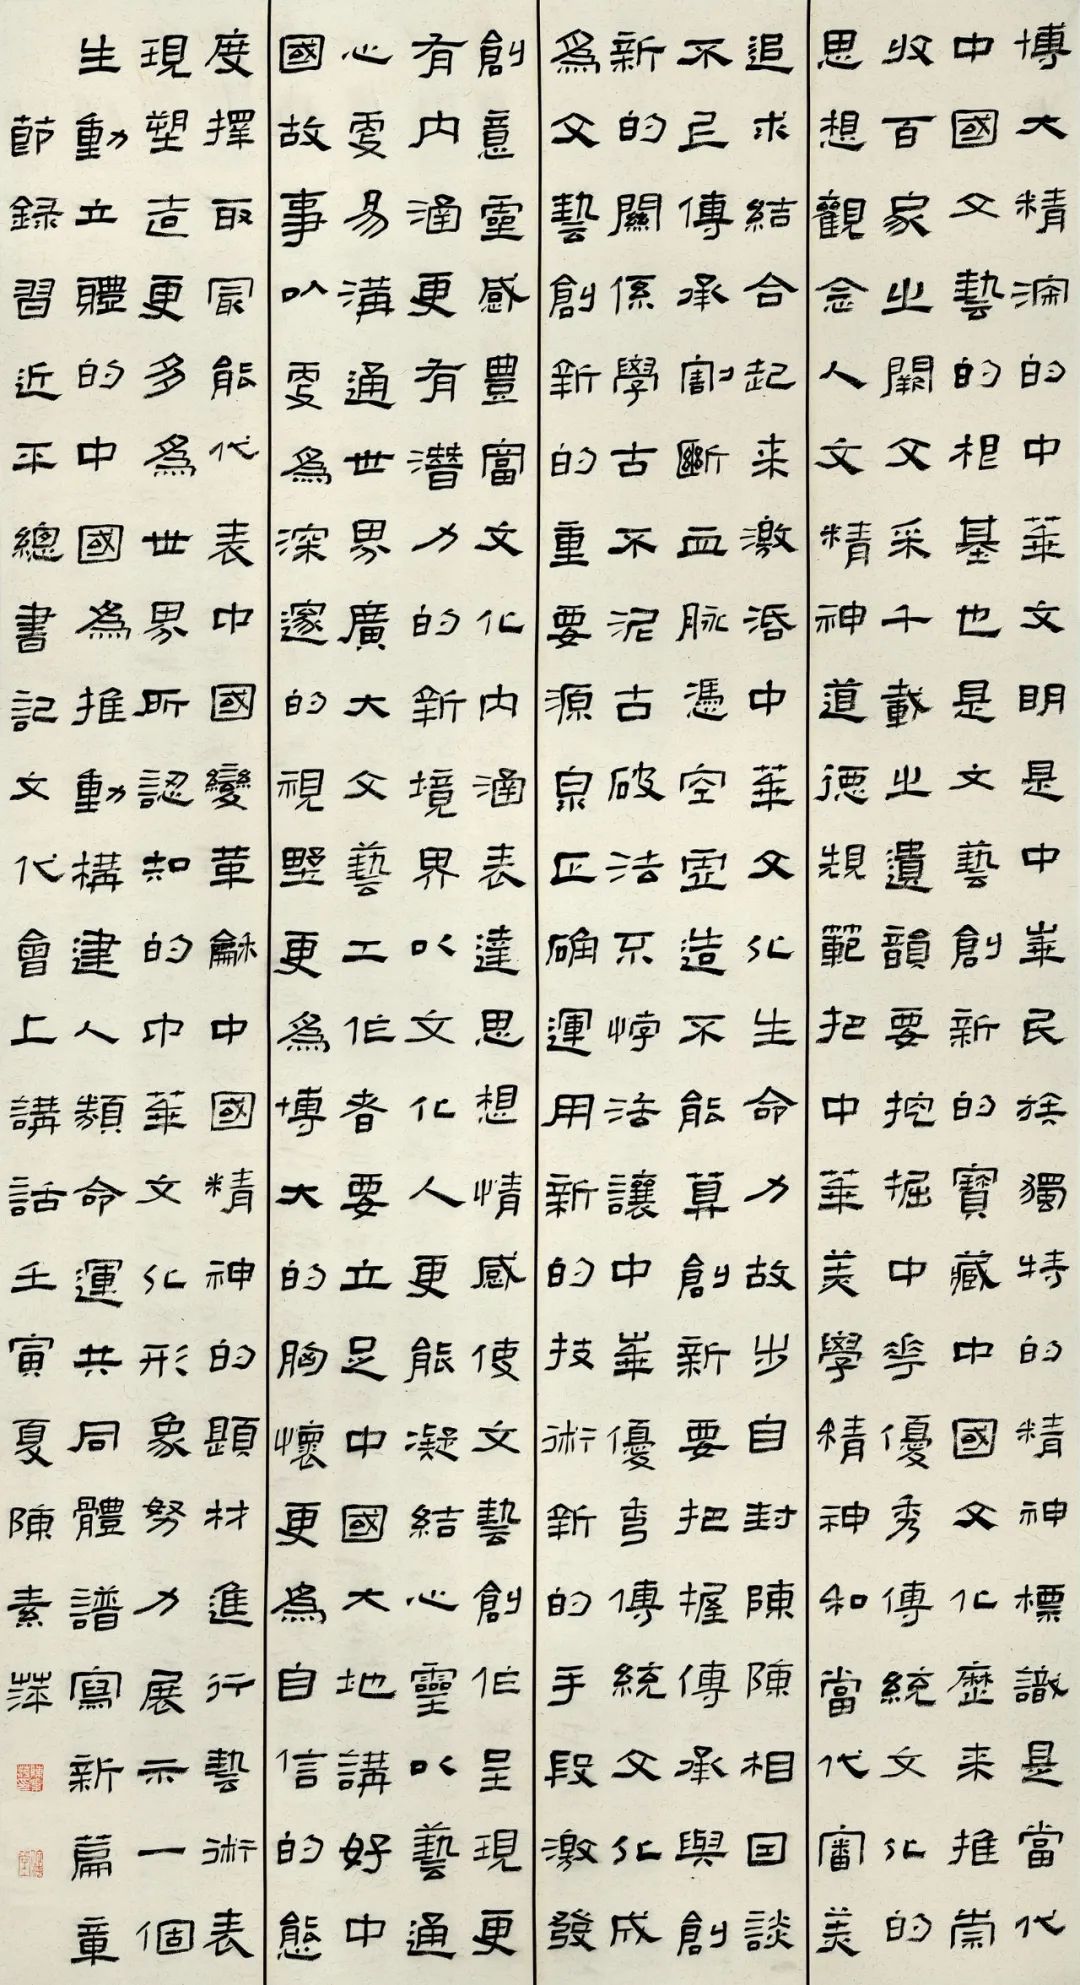 博大精深的中華文明是中華民族獨特的精神標識是當代
中國文藝的根基也是文藝創新的寶藏中國文化歷来推崇
收百家之闕文采千載之遺韻要挖掘中華優秀傳統文化的
思想觀念人文精神道德規範把中華美學精神和當代審美
追求結合起来激活中華文化生命力故步自封陳陳相因談
不上傳承割斷血脉憑空虛造不能算創新要把握傳承與創
新的關係學古不泥古破法不悖法讓中華優秀傳統文化成
爲文藝創新的重要源泉正确運用新的技術新的手段激發
創意靈感豐富文化内涵表達思想情感使文藝創作呈現更
有内涵更有潛力的新境界以文化人更能凝結心靈以藝通
心更易溝通世界廣大文藝工作者要立足中國大地講好中
國故事以更爲深邃的視野更爲博大的胸懷更爲自信的態
度擇取最能代表中國變革龢中國精神的題材進行藝術表
現塑造更多爲世界所認知的中華文化形象努力展示一個
生動立體的中國爲推動構建人類命運共同體譜寫新篇章
節録習近平總書記文代會上講話壬寅夏陳素萍